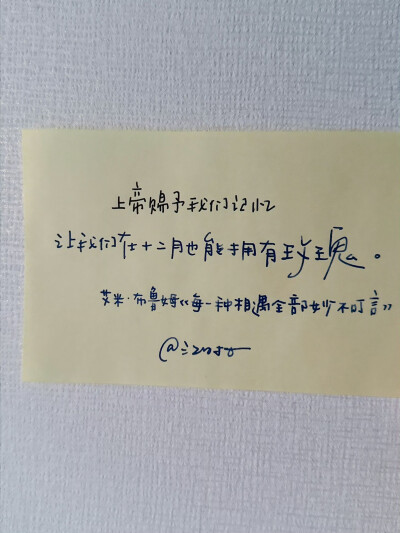 上帝赐予我们记忆
让我们在十二月也能拥有玫瑰。
艾米·布鲁姆《每一种相遇全部妙不可言》